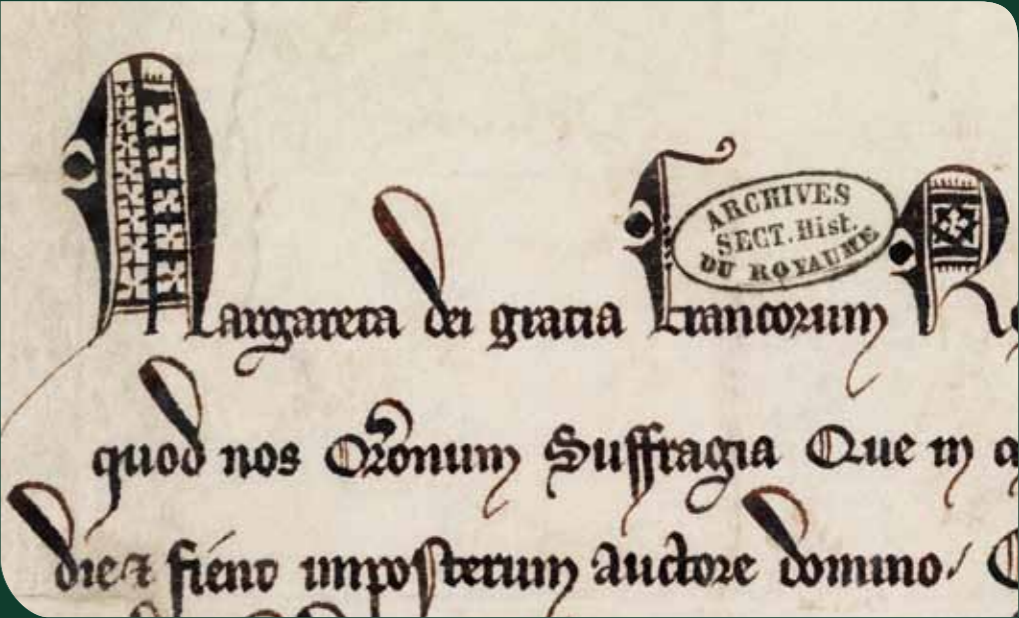 ARCHIVES
SECT. Hist.
DU ROYAUME
Margareta dei gratia Francorum R
quod nos Orōnum Suffragia Que in
die & fient imposterum auctore domino